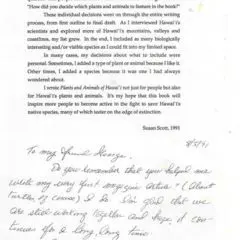 "How did you decide which plants and animals to feature in the book?"
These individual decisions went on through the entire writing
process, from first outline to final draft. As I interviewed Hawai'i's
scientists and explored more of Hawai'i's mountains, valleys and
coastlines, my list grew. In the end, I included as many biologically
interesting and/or visible species as I could fit into my limited space.
In many cases, my decisions about what to include were
personal. Sometimes, I added a type of plant or animal because I like it.
Other times, I added a species because it was one I had always
wondered about.
I wrote Plants and Animals of Hawai'i not just for people but also
for Hawai'i's plants and animals. It's my hope that this book will
inspire more people to become active in the fight to save Hawai'i's
native species, many of which teeter on the edge of extinction.
Susan Scott, 1991
To my friend George.
Do you remember that you helped me
write my very first magazine article? (About
turtles, of course) I do. I'm glad that we
are still working together and hope it con-
tinues for a long, long time.